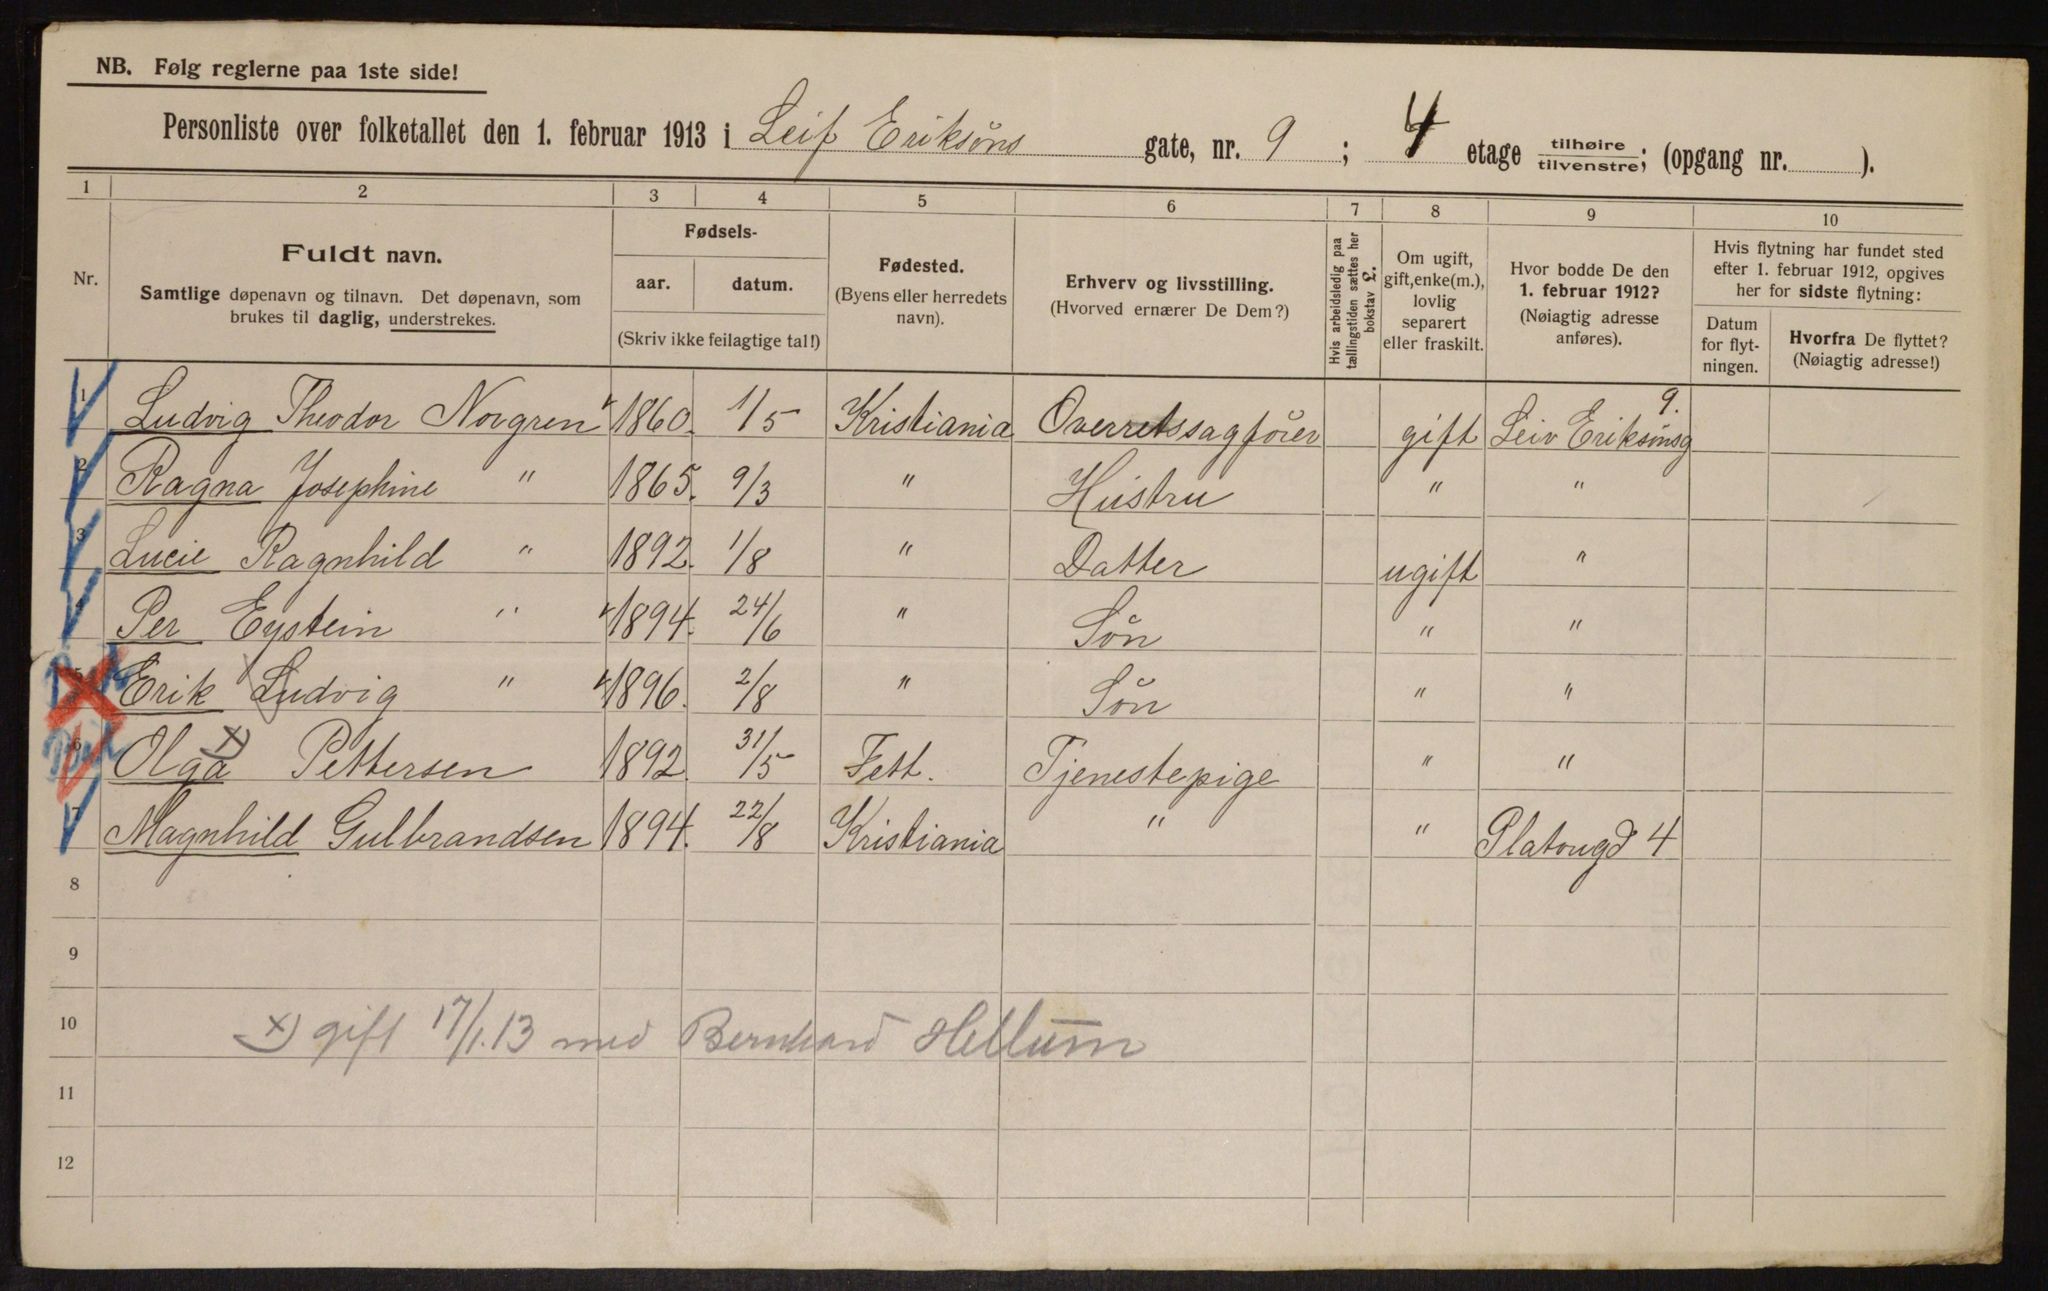 NB. Følg reglerne paa 1ste side!
Personliste over folketallet den 1. februar 1913 i Leif Eriksöns gate, nr. 9 ; 4 etage tilhøire/tilvenstre; (opgang nr. ).
1 2 3 4 5 6 7 8 9 10
Nr.
Fuldt navn.
Samtlige døpenavn og tilnavn. Det døpenavn, som
brukes til daglig, understrekes.
Fødsels-
aar. datum.
(Skriv ikke feilagtige tal!)
Fødested.
(Byens eller herredets
navn).
Erhverv og livsstilling.
(Hvorved ernærer De Dem?)
Hvis arbeidsledig paa
tællingstiden sættes her
bokstav L.
Om ugift,
gift, enke(m.),
lovlig
separert
eller fraskilt.
Hvor bodde De den
1. februar 1912?
(Nøiagtig adresse
anføres).
Hvis flytning har fundet sted
efter 1. februar 1912, opgives
her for sidste flytning:
Datum
for flyt-
ningen.
Hvorfra De flyttet?
(Nøiagtig adresse!)
1 Ludvig Theodor Norgren 1860. 1/5 Kristiania Overretssagförer gift Leiv Eriksönsg 9.
2 Ragna Josephine " 1865. 9/3 " Hustru " "
3 Lucie Ragnhild " 1892. 1/8 " Datter ugift "
4 Per Eystein " 1894. 24/6 " Sön " "
5 Erik Ludvig " 1896. 2/8 " Sön " "
6 Olga x) Pettersen 1892. 31/5 Fett. Tjenestepige " "
7 Magnhild Gulbrandsen 1894. 22/8 Kristiania " " Platougd 4
8
9
10 x) gift 17/1.13 med Bernhard Hellum
11
12